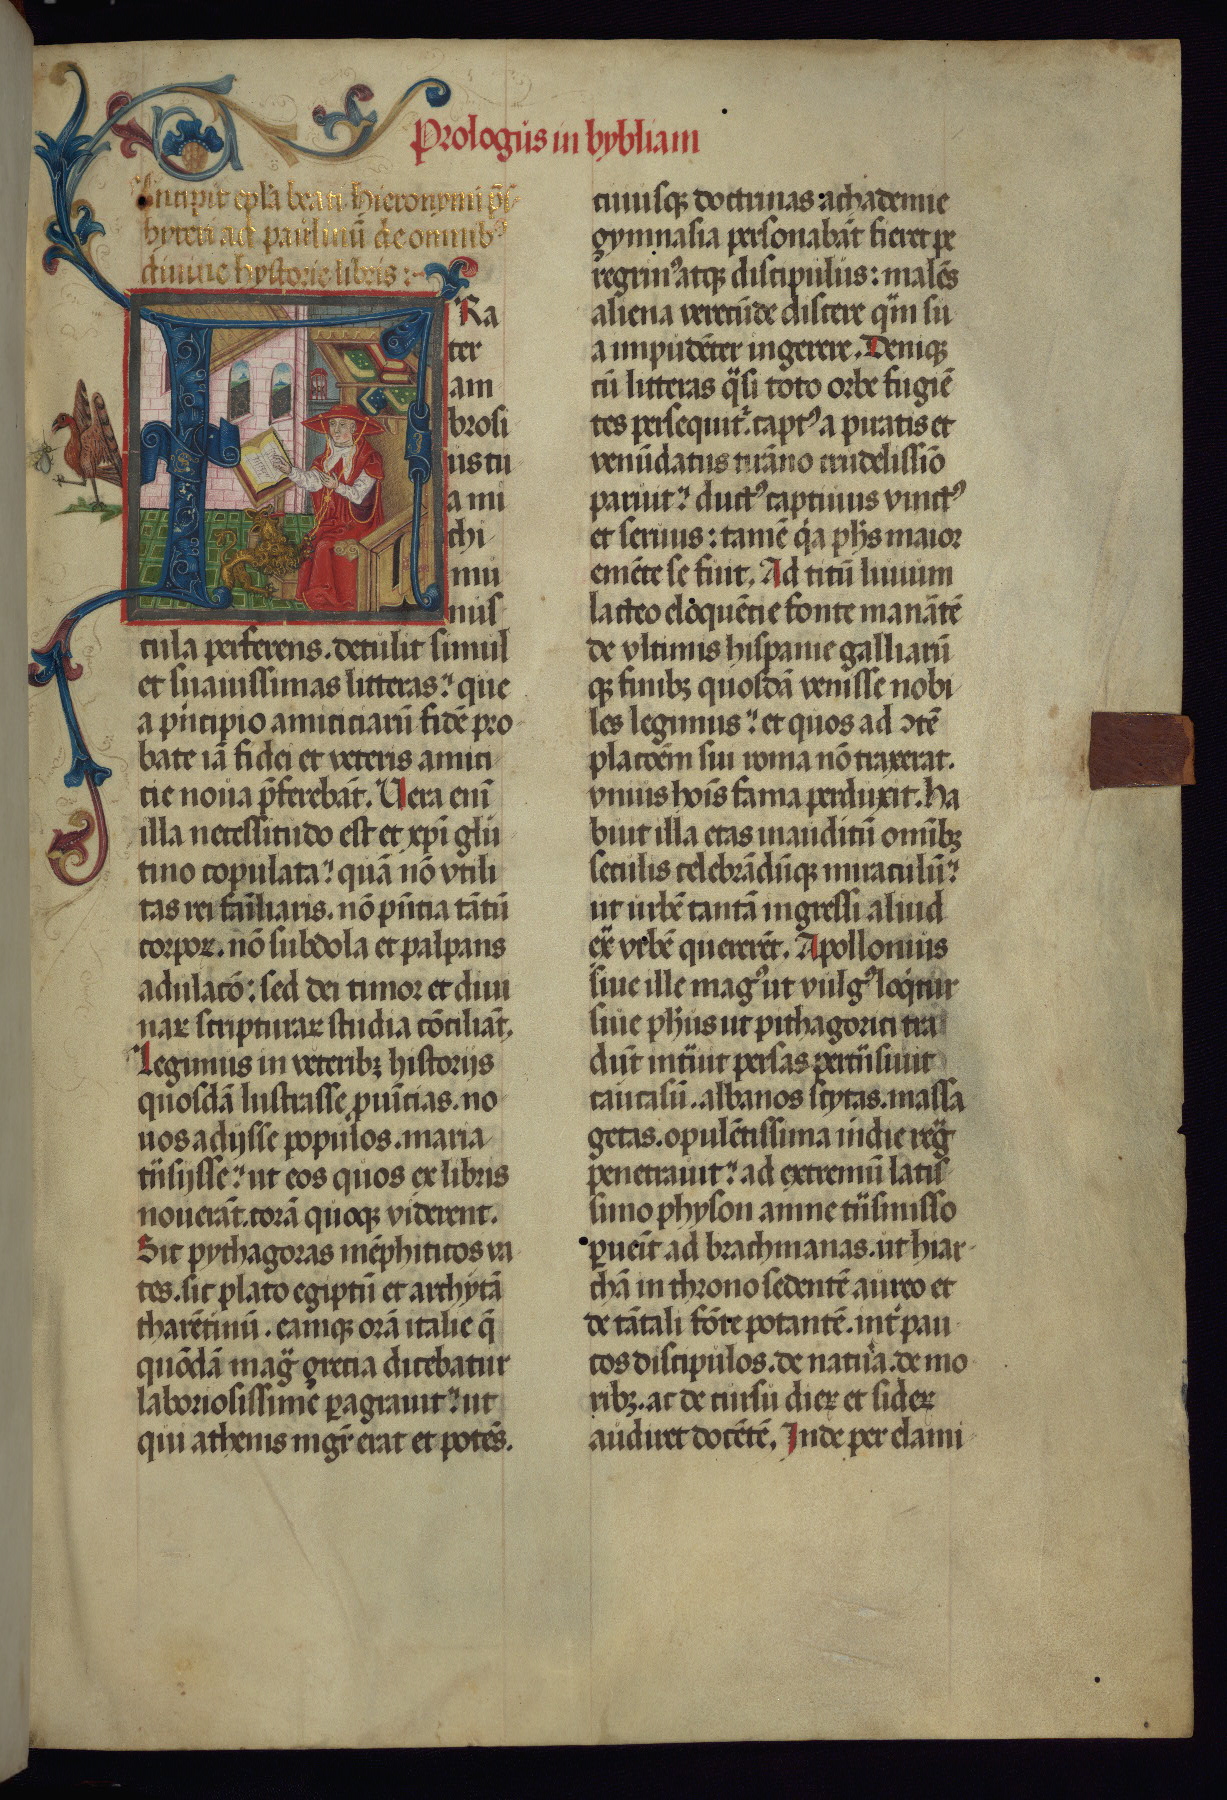 Prologus in bybliam
Incipit epl̄a beati Hieronymi p̄s
byteri ad paulinū de omnibꝰ
diuine hystorie libris :-
FRa
ter
am
brosi
us tu
a mi
chi
mu
nus
cula perferens. detulit simul
et suauissimas litteras? que
a pͥncipio amiciciarū fidē pro
bate iā fidei et veteris amici
cie noua p̄ferebāt. Uera enī
illa necessitudo est et xp̄i glu
tino copulata? quā nō vtili
tas rei familiaris. nō pn̄tia tātū
corporꝝ. nō subdola et palpans
adulacō: sed dei timor et diui
naꝝ scripturaꝝ studia cōciliāt.
Legimus in veteribꝫ historijs
quosdā lustrasse ꝓuīcias. no
uos adijsse popūlos. maria
tᷓnsijsse? ut eos quos ex libris
nouerāt. corā quoqꝫ viderent.
Sic pythagoras mēphiticos va
tes. sic plato egiptū et archytā
tharētinū. eamqꝫ orā italie q̄
quōdā magᷓ grecia dicebatur
laboriosissime ꝑagrauit? ut
qui athenis mgr̄ erat et potēs.
cuiusqꝫ doctrinas achademie
gymnasia personabāt fieret pe
regrinꝰ atqꝫ discipulus: malēs
aliena verecūde discere qᷓm su
a impudēter ingerere. Deniqꝫ
cū litteras qᷓsi toto orbe fugiē
tes persequitᷣ. captꝰ a piratis et
venūdatus tirāno crudelissīo
paruit? ductꝰ captiuus vinctꝰ
et seruus: tamē qͥa ph̄s maior
emēte se fuit. Ad titū liuium
lacteo eloquētie fonte manātē
de vltimis hispanie galliarū
qꝫ finibꝫ quosdā venisse nobi
les legimus? et quos ad ↄtē
placōēm sui roma nō traxerat.
vnius hoīs fama perduxit. Ha
buit illa etas inauditū omībꝫ
seculis celebrādūqꝫ miraculū?
ut urbē tantā ingressi aliud
exᷓ vrbē quererēt. Apollonius
siue ille magꝰ ut vulgꝰ loqͥtur
siue ph̄us ut pithagorici tra
dūt intᷓuit persas pertᷓnsiuit
caucasū. albanos scytas. massa
getas. opulētissima indie regᷓ
penetrauit? ad extremū latis
simo physon amne tᷓnsmisso
ꝑueīt ad brachmanas. ut hiar
chā in throno sedentē aureo et
de tātali fōte potantē. intͥ pau
cos discipulos. de natura. de mo
ribꝫ. ac de cursu dieꝝ et sideꝝ
audiret docētē. Inde per elami